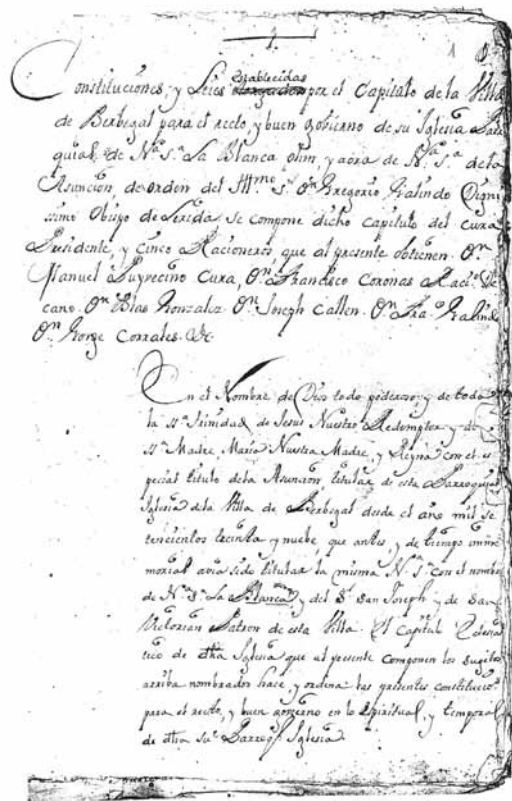 1.
1
Constituciones, y Leies establecidas por el Capitulo de la Villa
de Berbegal para el recto, y buen gobierno de su Iglesia Parro
quial de Nª Sª La Blanca olim, y aora de Nª Sª de la
Asuncion, de orden del Illmo Sr Dn Gregorio Galindo Digni
ssimo Obispo de Lerida. Se compone dicho capitulo del cura
Presidente, y cinco Racioneros, que al presente obtienen. Dn
Manuel Puyrecino Cura, Dn Francisco Coronas Racº De
cano. Dn Blas Gonzalez. Dn Joseph Callen. Dn Fraº Galindo
Dn Jorge Corrales. &c.
En el Nombre de Dios todo poderoso, y de toda
la SSª Trinidad de Jesus Nuestro Redemptor y de
SSª Madre, Maria Nuestra Madre, y Reyna con el es
pecial titulo de la Asuncion titular de esta Parroquial
Iglesia de la Villa de Berbegal desde el año mil se
tecientos treinta y nuebe, que antes, y de tiempo imme
morial avia sido titular la misma Nª Sª con el nombre
de Nª Sª La Blanca, y del Sr San Joseph y de San
Victorian Patron de esta Villa. El Capitul Eclesias
tico de dha Iglesia que al presente componen los sugetos
arriba nombrados hace, y ordina las presentes constitucioº
para el recto, y buen govierno en lo Espiritual, y temporal
de dha Parroql Iglesia